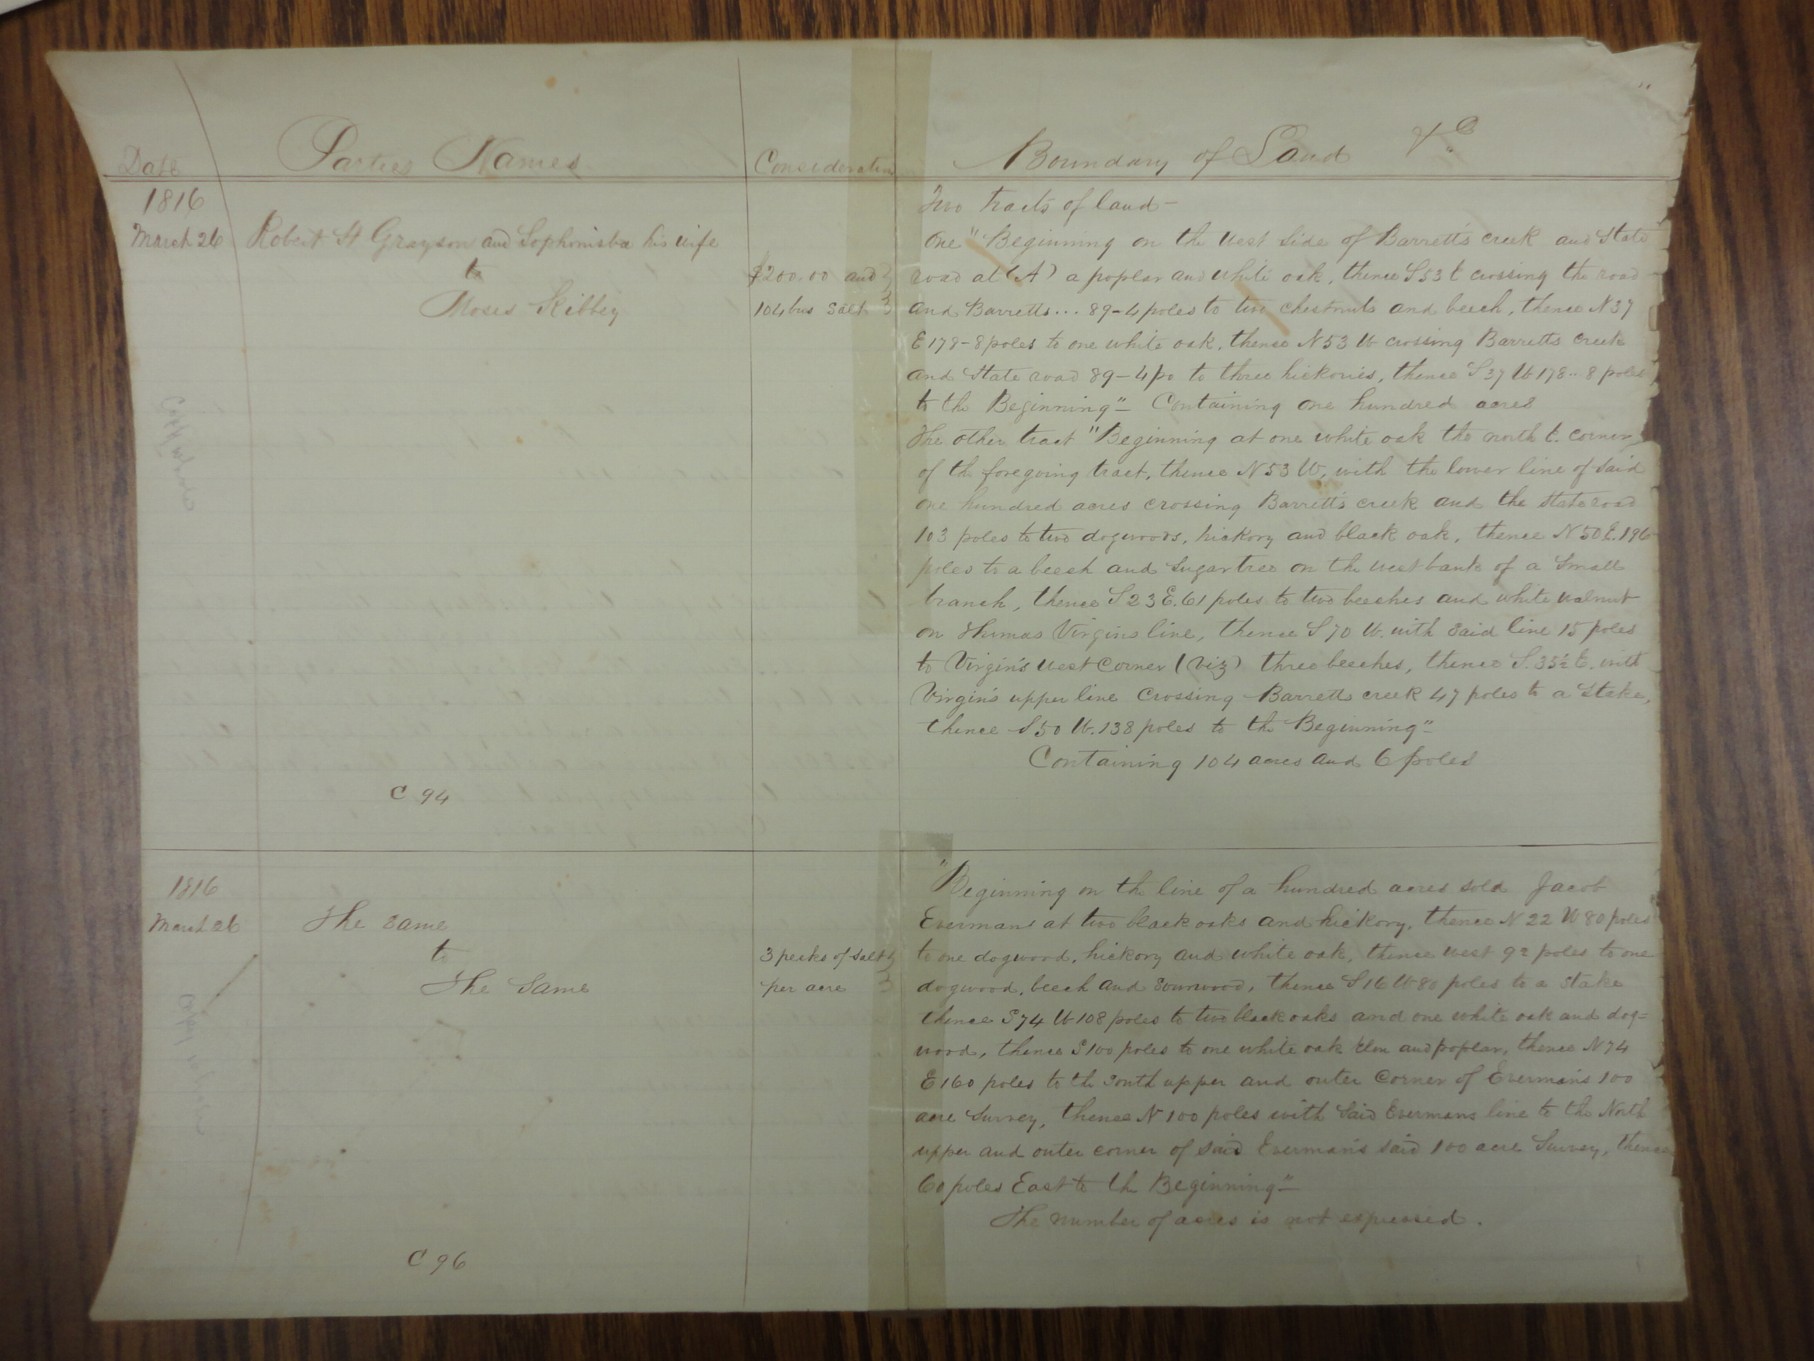 Date
Parties Names
Consideration
Boundary of Land &c.
1816
March 26
Robert H Grayson and Sophonisba his wife
to
Moses Kibbey
$200.00 and
104 bus Salt
Two tracts of land —
One "Beginning on the West Side of Barrett's creek and State
road at (A) a poplar and white oak, thence S 53 E crossing the road
and Barretts... 89-4 poles to two chestnuts and beech, thence N 37
E 178-8 poles to one white oak, thence N 53 W crossing Barretts creek
and State road 89-4 po to three hickories, thence S 37 W 178.. 8 poles
to the Beginning" — Containing one hundred acres
The other tract "Beginning at one white oak the north E. corner
of the foregoing tract, thence N 53 W, with the lower line of said
one hundred acres crossing Barretts creek and the State road
103 poles to two dogwoods, hickory and black oak, thence N 50 E. 196
poles to a beech and Sugartree on the west bank of a Small
branch, thence S 23 E. 61 poles to two beeches and white walnut
on Thomas Virgins line, thence S 70 W. with Said line 15 poles
to Virgin's West Corner (viz) three beeches, thence S. 35½ E. with
Virgin's upper line Crossing Barretts creek 47 poles to a Stake,
thence S 50 W. 138 poles to the Beginning" —
Containing 104 acres and 6 poles
C 94
1816
March 26
The Same
to
The Same
3 pecks of Salt
per acre
"Beginning on the line of a hundred acres sold Jacob
Evermans at two black oaks and hickory, thence N 22 W 80 poles
to one dogwood, hickory and white oak, thence west 92 poles to one
dogwood, beech and Sourwood, thence S 16 W 80 poles to a Stake
thence S 74 W 108 poles to two black oaks and one white oak and dog=
wood, thence S 100 poles to one white oak Elm and poplar, thence N 74
E 160 poles to the South upper and outer Corner of Everman's 100
acre Survey, thence N 100 poles with Said Evermans line to the North
upper and outer corner of said Everman's said 100 acre Survey, thence
60 poles East to th Beginning" —
The number of acres is not expressed.
C 96